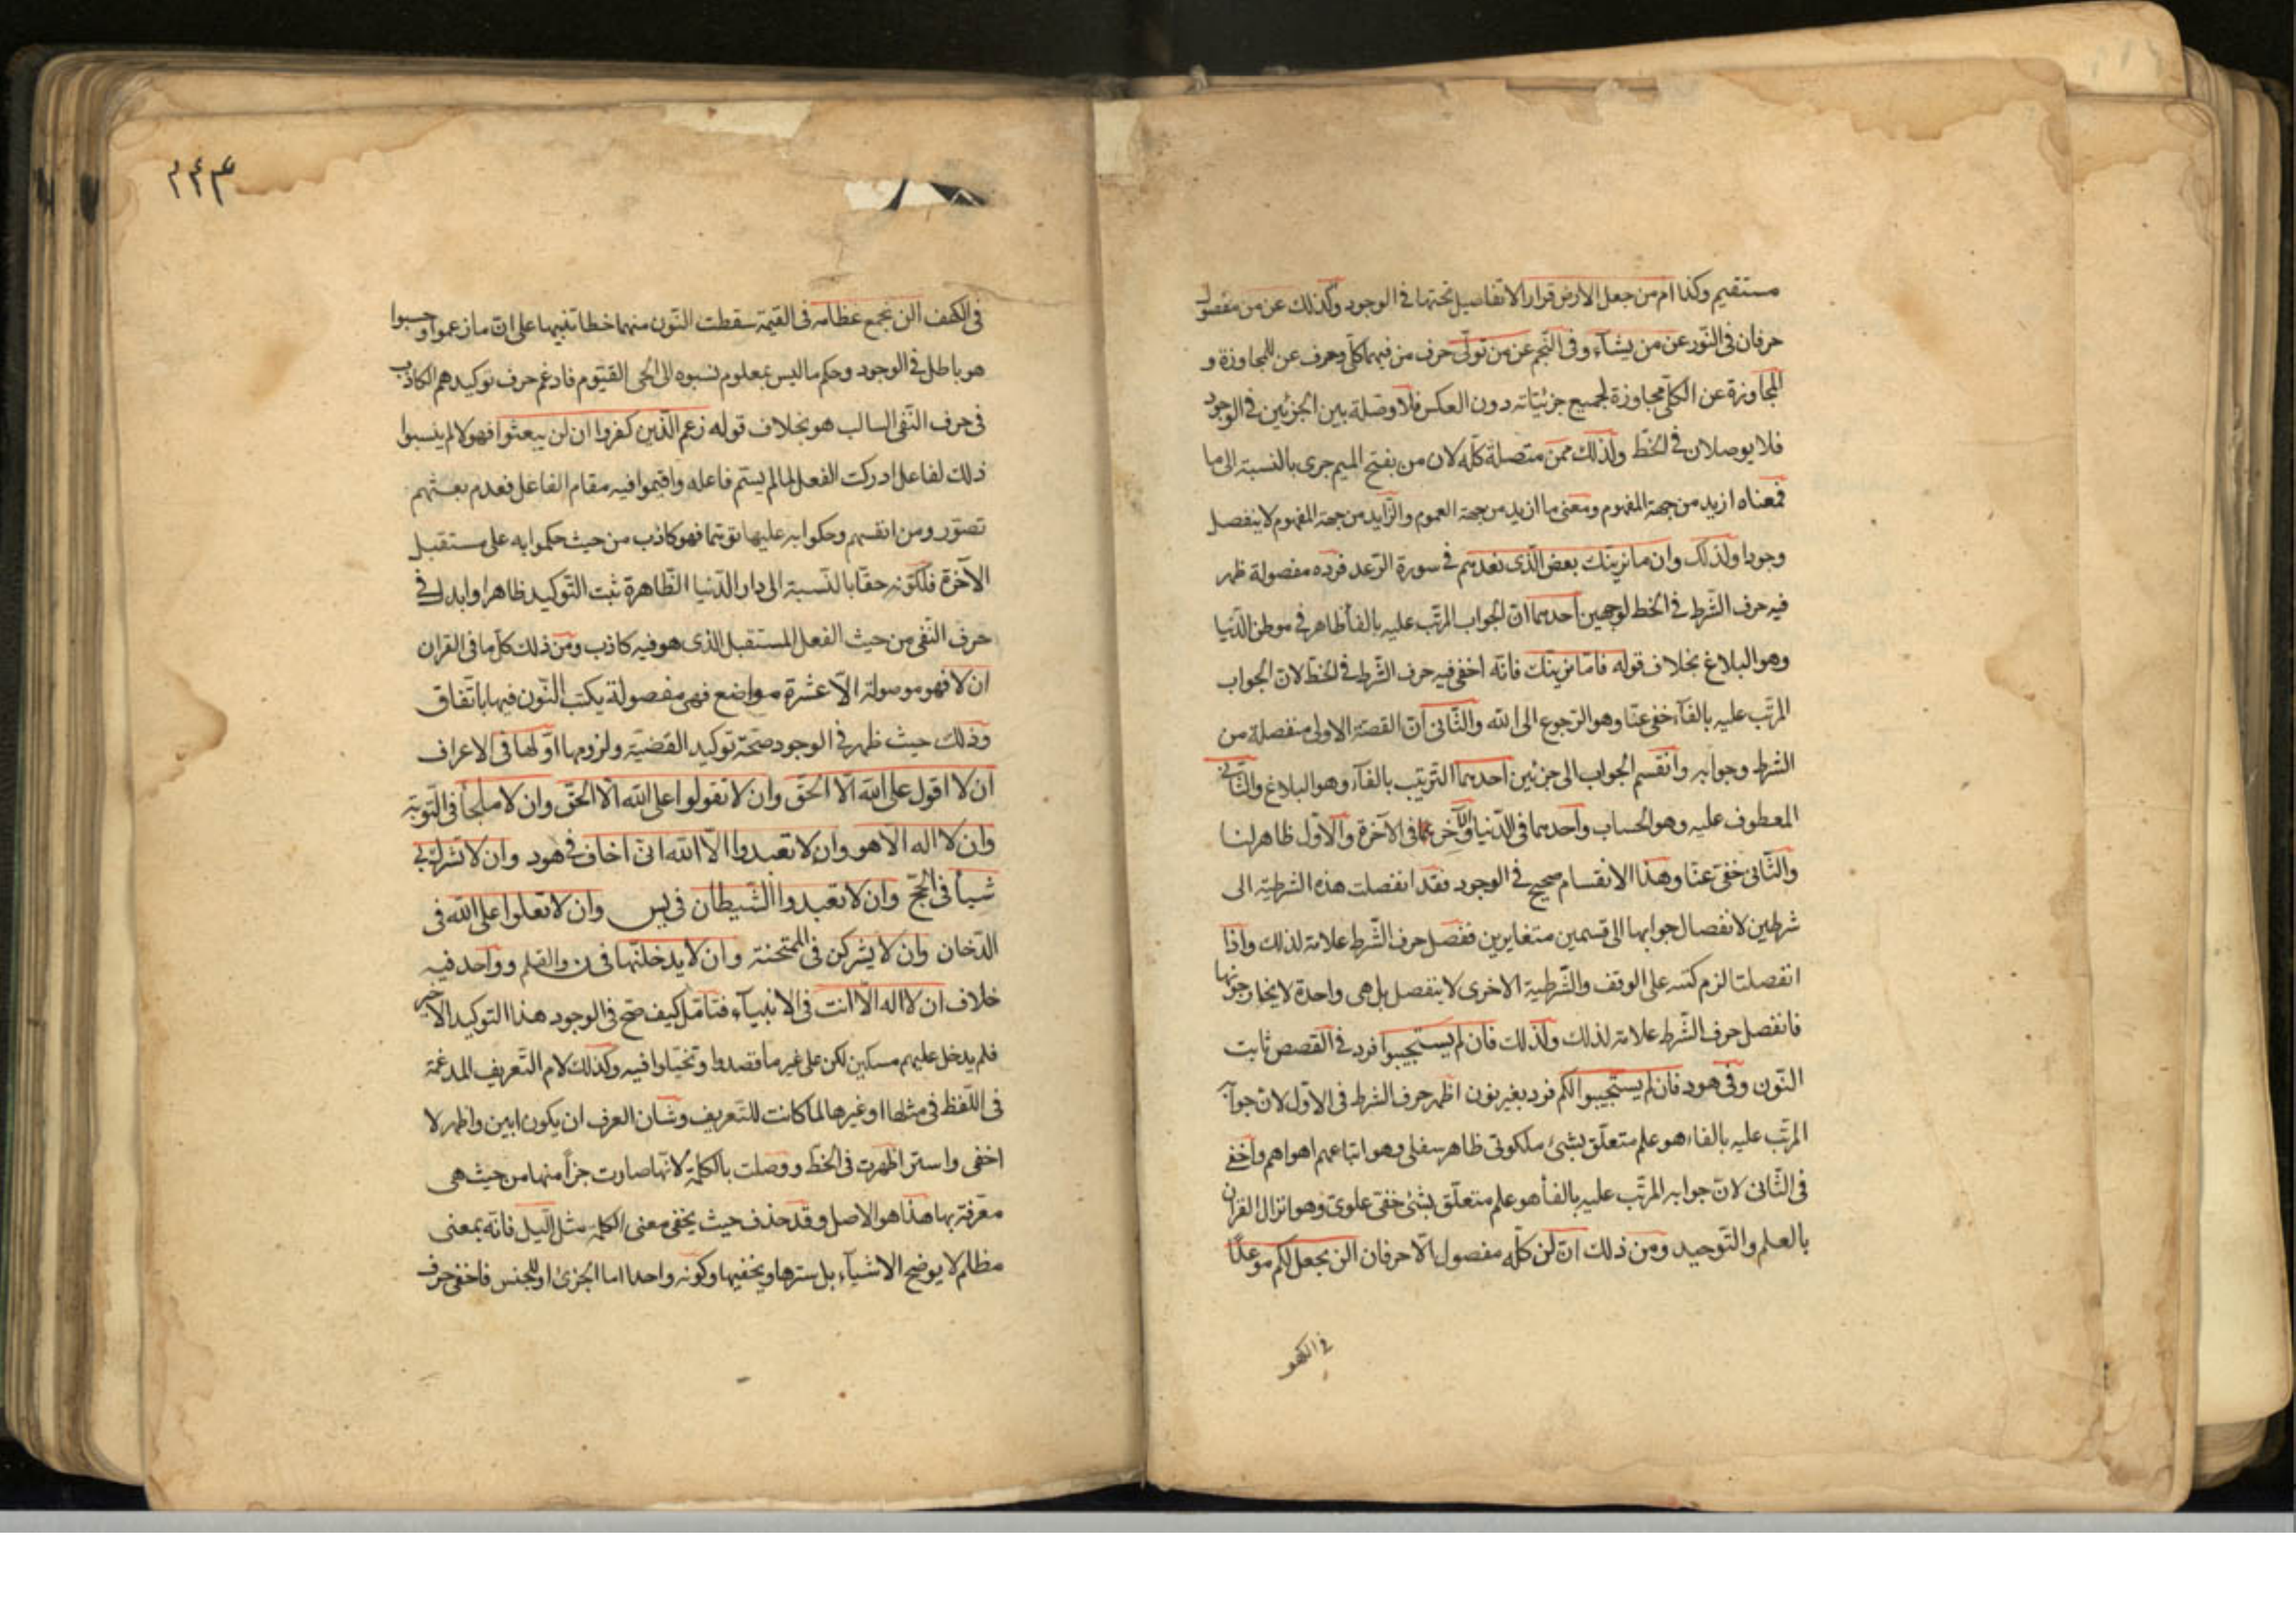 مستقيم وكذا ام من جعل الارض قرارا لا تفاصيل تحتها في الوجود وكذلك عن من مفصول
حرفان في النّور عن من يشآء وفي النّجم عن من تولّى حرف من فيهما كلّى وحرف عن للمجاوزة و
المجاوزة عن الكلّى مجاوزة لجميع جزئيّاته دون العكس فلا وصلة بين الجزئين في الوجود
فلا يوصلان في الخطّ ولذلك ممّن متّصلة كلّه لان من بفتح الميم جزى بالنسبة الى ما
فمعناه ازيد من جهة المفهوم ومعنى ما ازيد من جهة العموم والزّايد من جهة المفهوم لا ينفصل
وجودا ولذلك وان ما نرينّك بعض الّذى نعدهم في سورة الرّعد فرده مفصولة ظهر
فيه حرف الشّرط في الخط لوجهين احدهما انّ الجواب المرتّب عليه بالفأ ظاهر في موطن الدّنيا
وهو البلاغ بخلاف قوله فامّا نرينّك فانّه اخفى فيه حرف الشّرط في الخطّ لانّ الجواب
المرتّب عليه بالفآء خفى عنّا وهو الرّجوع الى الله والثّانى انّ القصّة الاولى منفصلة من
الشرط وجوابه وانقسم الجواب الى جزئين احدهما التّرتيب بالفآء وهو البلاغ والثّانى
المعطوف عليه وهو الحساب واحدهما في الدّنيا والآخر في الآخرة والاوّل ظاهر لنا
والثّانى خفى عنّا وهذا الانقسام صحيح في الوجود فقد انفصلت هذه الشرطيّة الى
شرطين لانفصال جوابها الى قسمين متغايرين ففصل حرف الشّرط علامة لذلك واذا
انفصلتا لزم كتبه على الوقف والشّرطية الاخرى لا ينفصل بل هى واحدة لاتحاد جوابها
فانفصل حرف الشّرط علامة لذلك ولذلك فان لم يستجيبوا فرد في القصص ثابت
النّون وفي هود فان لم يستجيبوا لكم فرد بغير نون اظهر حرف الشرط في الاوّل لانّ جوابه
المرتّب عليه بالفاء هو علم متعلّق بشئ ملكوتى ظاهر سفلى وهو اتباعهم اهواهم واخفى
في الثّانى لانّ جوابه المرتّب عليه بالفأ هو علم متعلّق بشئ خفى علوىّ وهو انزال القرآن
بالعلم والتّوحيد ومن ذلك انّ لن كلّه مفصول الّا حرفان الن يجعل لكم موعدًا
في الكهف
٢٤٣
في الكهف الن نجمع عظامه في القيمة سقطت النّون منهما خطا تنبيها على انّ ما زعموا وحسبوا
هو باطل في الوجود وحكم ما ليس بمعلوم نسبوه الى الحى القيّوم فادغم حرف توكيدهم الكاذب
في حرف النّفى السالب هو بخلاف قوله زعم الّذين كفروا ان لن يبعثوا فهولا لم ينسبوا
ذلك لفاعل اذ ركّب الفعل لما لم يسّم فاعله واقيموا فيه مقام الفاعل فعدم بعثهم
تصوّروه من انفسهم وحكوا به عليها توهّما فهو كاذب من حيث حكموا به على مستقبل
الآخرة فلكونه حقّا بالنّسبة الى دار الدّنيا الظّاهرة ثبت التّوكيد ظاهرا وابد له في
حرف النّفى من حيث الفعل المستقبل الذى هو فيه كاذب ومن ذلك كلّ ما في القران
ان لا فهو موصولة الّا عشرة مواضع فهى مفصولة يكتب النّون فيها باتّفاق
وذلك حيث ظهر في الوجود صحّة توكيد القضيّة ولزومها اوّلها في الاعراف
ان لا اقول على الله الّا الحقّ وان لا تقولوا على الله الّا الحقّ وان لا ملجأ في التّوبة
وان لا اله الّا هو وان لا تعبدوا الّا الله انّى اخاف في هود وان لا تشرك بى
شيأ في الحجّ وان لا تعبدوا الشّيطان في يس وان لا تعلوا على الله في
الدّخان وان لا يشركن في الممتحنة وان لا يدخلنّها في ن والقلم وواحد فيه
خلاف ان لا اله الّا انت في الانبيآء فتأمّل كيف صحّ في الوجود هذا التوكيد الاخير
فلم يدخل عليهم مسكين لكن على غير ما قصدوا وتخيّلوا فيه وكذلك لام التّعريف المدغمة
في اللّفظ في مثلها او غيرها لما كانت للتّعريف وشان العرف ان يكون ابين واظهر لا
اخفى واستر اظهرت في الخطّ ووصلت بالكلمة لانّها صارت جزأ منها من حيث هى
معرّفة بها هذا هو الاصل وقد حذف حيث يخفى معنى الكلمة مثل الّيل فانّه بمعنى
مظلم لا يوضح الاشيآء بل يسترها ويخفيها وكونه واحدا اما الجزئ او للجنس فاخفى حرف